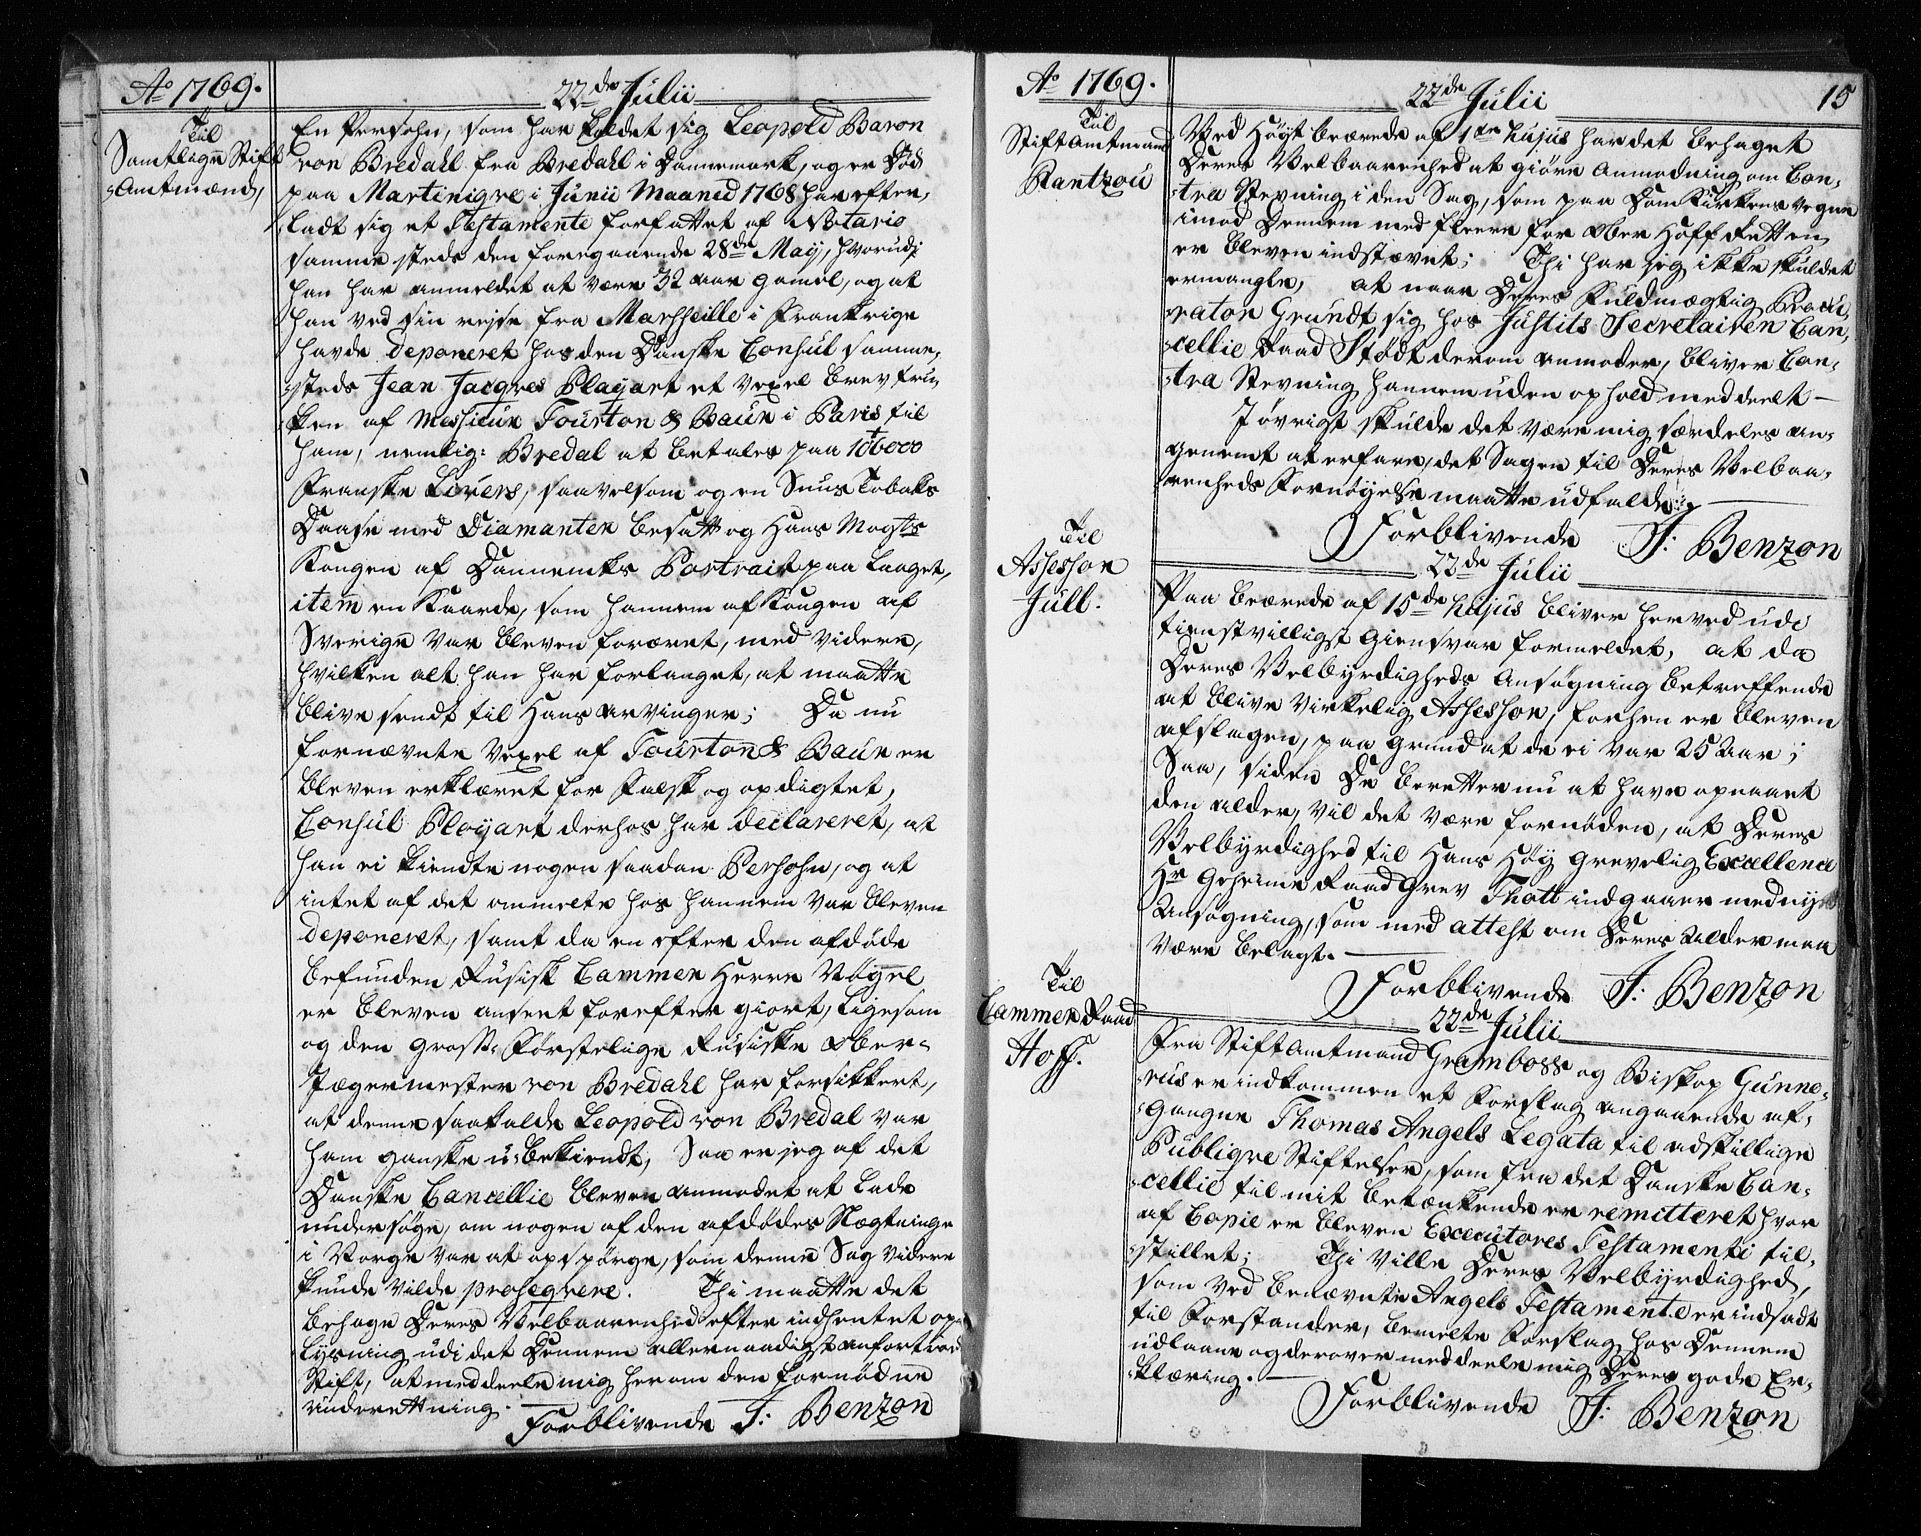 Ao 1769.
22de Julii
Til
Samtlige Stift
Amtmænd,
En Persohn, som har kaldet sig Leopold Baron
von Bredahl fra Bredahl i Dannemark, og er Død
paa Martiniqve i Junii Maaned 1768 har efter-
ladt sig et Testamente forfattet af Notario
sammesteds den foregaaende 28de May, hvorudj
han har anmeldet at være 32 aar gamel, og at
han ved sin rejse fra Marsseille i Frankrige
havde deponeret hos den Danske Consul samme-
steds Jean Jacqves Playart et Vexel Brev truk-
ken af Messieur Tourton & Baur i Paris til
ham, nemlig: Bredal at betales paa 106000
Franske Livers, saavelsom og en Snus Tobaks
Daase med Diamanter besatt og Hans Mayts
Kongen af Dannemks Portrait paa laaget,
item en Kaarde, som hannem af Kongen af
Sverige var bleven foræret, med videre,
hvilken alt han har forlanget, at maatte
blive sendt til Hans arvinger; Da nu
fornævnte Vexel af Tourton & Baur er
bleven erklæret for Falsk og opdigtet,
Consul Ployart derhos har declareret, at
han ei kiendte nogen saadan Persohn, og at
intet af det ommelte hos hannem var bleven
deponeret, samt da en efter den afdøde
befunden Rusisk Cammer Herre Nøgel
er bleven anseet for efter giort, ligesom
og den Grosst: Førstelige Rusiske Ober-
Jægermester von Bredahl har forsikkert,
at denne saakalde Leopold von Bredal var
ham ganske u-bekiendt, Saa er jeg af det
Danske Cancellie bleven anmodet at lade
undersøge, om nogen af den afdødes Slægtninge
i Norge var at opspørge, som denne Sag videre
kunde vilde proseqvere. Thi maatte det
behage Deres Velbaarenhed efter indhentet op-
lysning udi det Dennem allernaadigst anfortroede
Stift, at meddeele mig herom den fornødne
underrettning.
Forblivende J: Benzon
Ao 1769.
22de Julii
15
Til
StiftAmtmand
Rantzou
Ved Høyt beærede af 1ste hujus har det behaget
Deres Velbaarenhed at giøre Anmodning om Con-
tra Stevning i den Sag, som paa DomKirkens vegne
imod Dennem med fleere for Ober Hoff Retten
er bleven indstævnet; Thi har jeg ikke skuldet
ermangle, at naar Deres Fuldmægtig Procu-
rator Grundt sig hos Justits Secretairen Can-
cellie Raad Stødt derom anmoder, bliver Con-
tra Stevning hannem uden ophold meddeelt —
J øvrigt skulde det være mig særdeles an-
genemt at erfare, det Sagen til Deres Velbaa-
renheds Fornøyelse maatte udfalde.
Forblivende J: Benzon
22de Julii
Til
Assessor
Jull.
Paa beærede af 15de hujus bliver herved udi
tienstvilligst Giensvar formeldet, at da
Deres Velbyrdigheds Ansøgning betreffende
at blive virkelig Assessor, forhen er bleven
afslagen, paa grund at de ei var 25 Aar;
Saa, siden De beretter nu at have opnaaet
den alder, vil det være fornøden, at Deres
Velbyrdighed til Hans Høy Grevelig Excellence
Hr Geheime Raad Grev Thott indgaaer med nye
Ansøgning, som med attest om Deres Alder maa
være belagt.
Forblivende J: Benzon
22de Julii
Til
Cammer Raad
Hoff.
Fra StiftAmtmand Grambow og Biskop Gunne-
rus er indkommen et Forslag angaaende af-
gangne Thomas Angels Legata til adskillige
Publiqve Stiftelser, som fra det Danske Can-
cellie til mit betænkende er remitteret hvor
af Copie er bleven Executores Testamenti til-
stillet; Thi ville Deres Velbyrdighed,
som ved benævnte Angels Testamente er indsadt
til Forstander, bemelte Forslag hos Dennem
udlaane og derover meddeele mig Deres gode Er-
klæring.
Forblivende J: Benzon